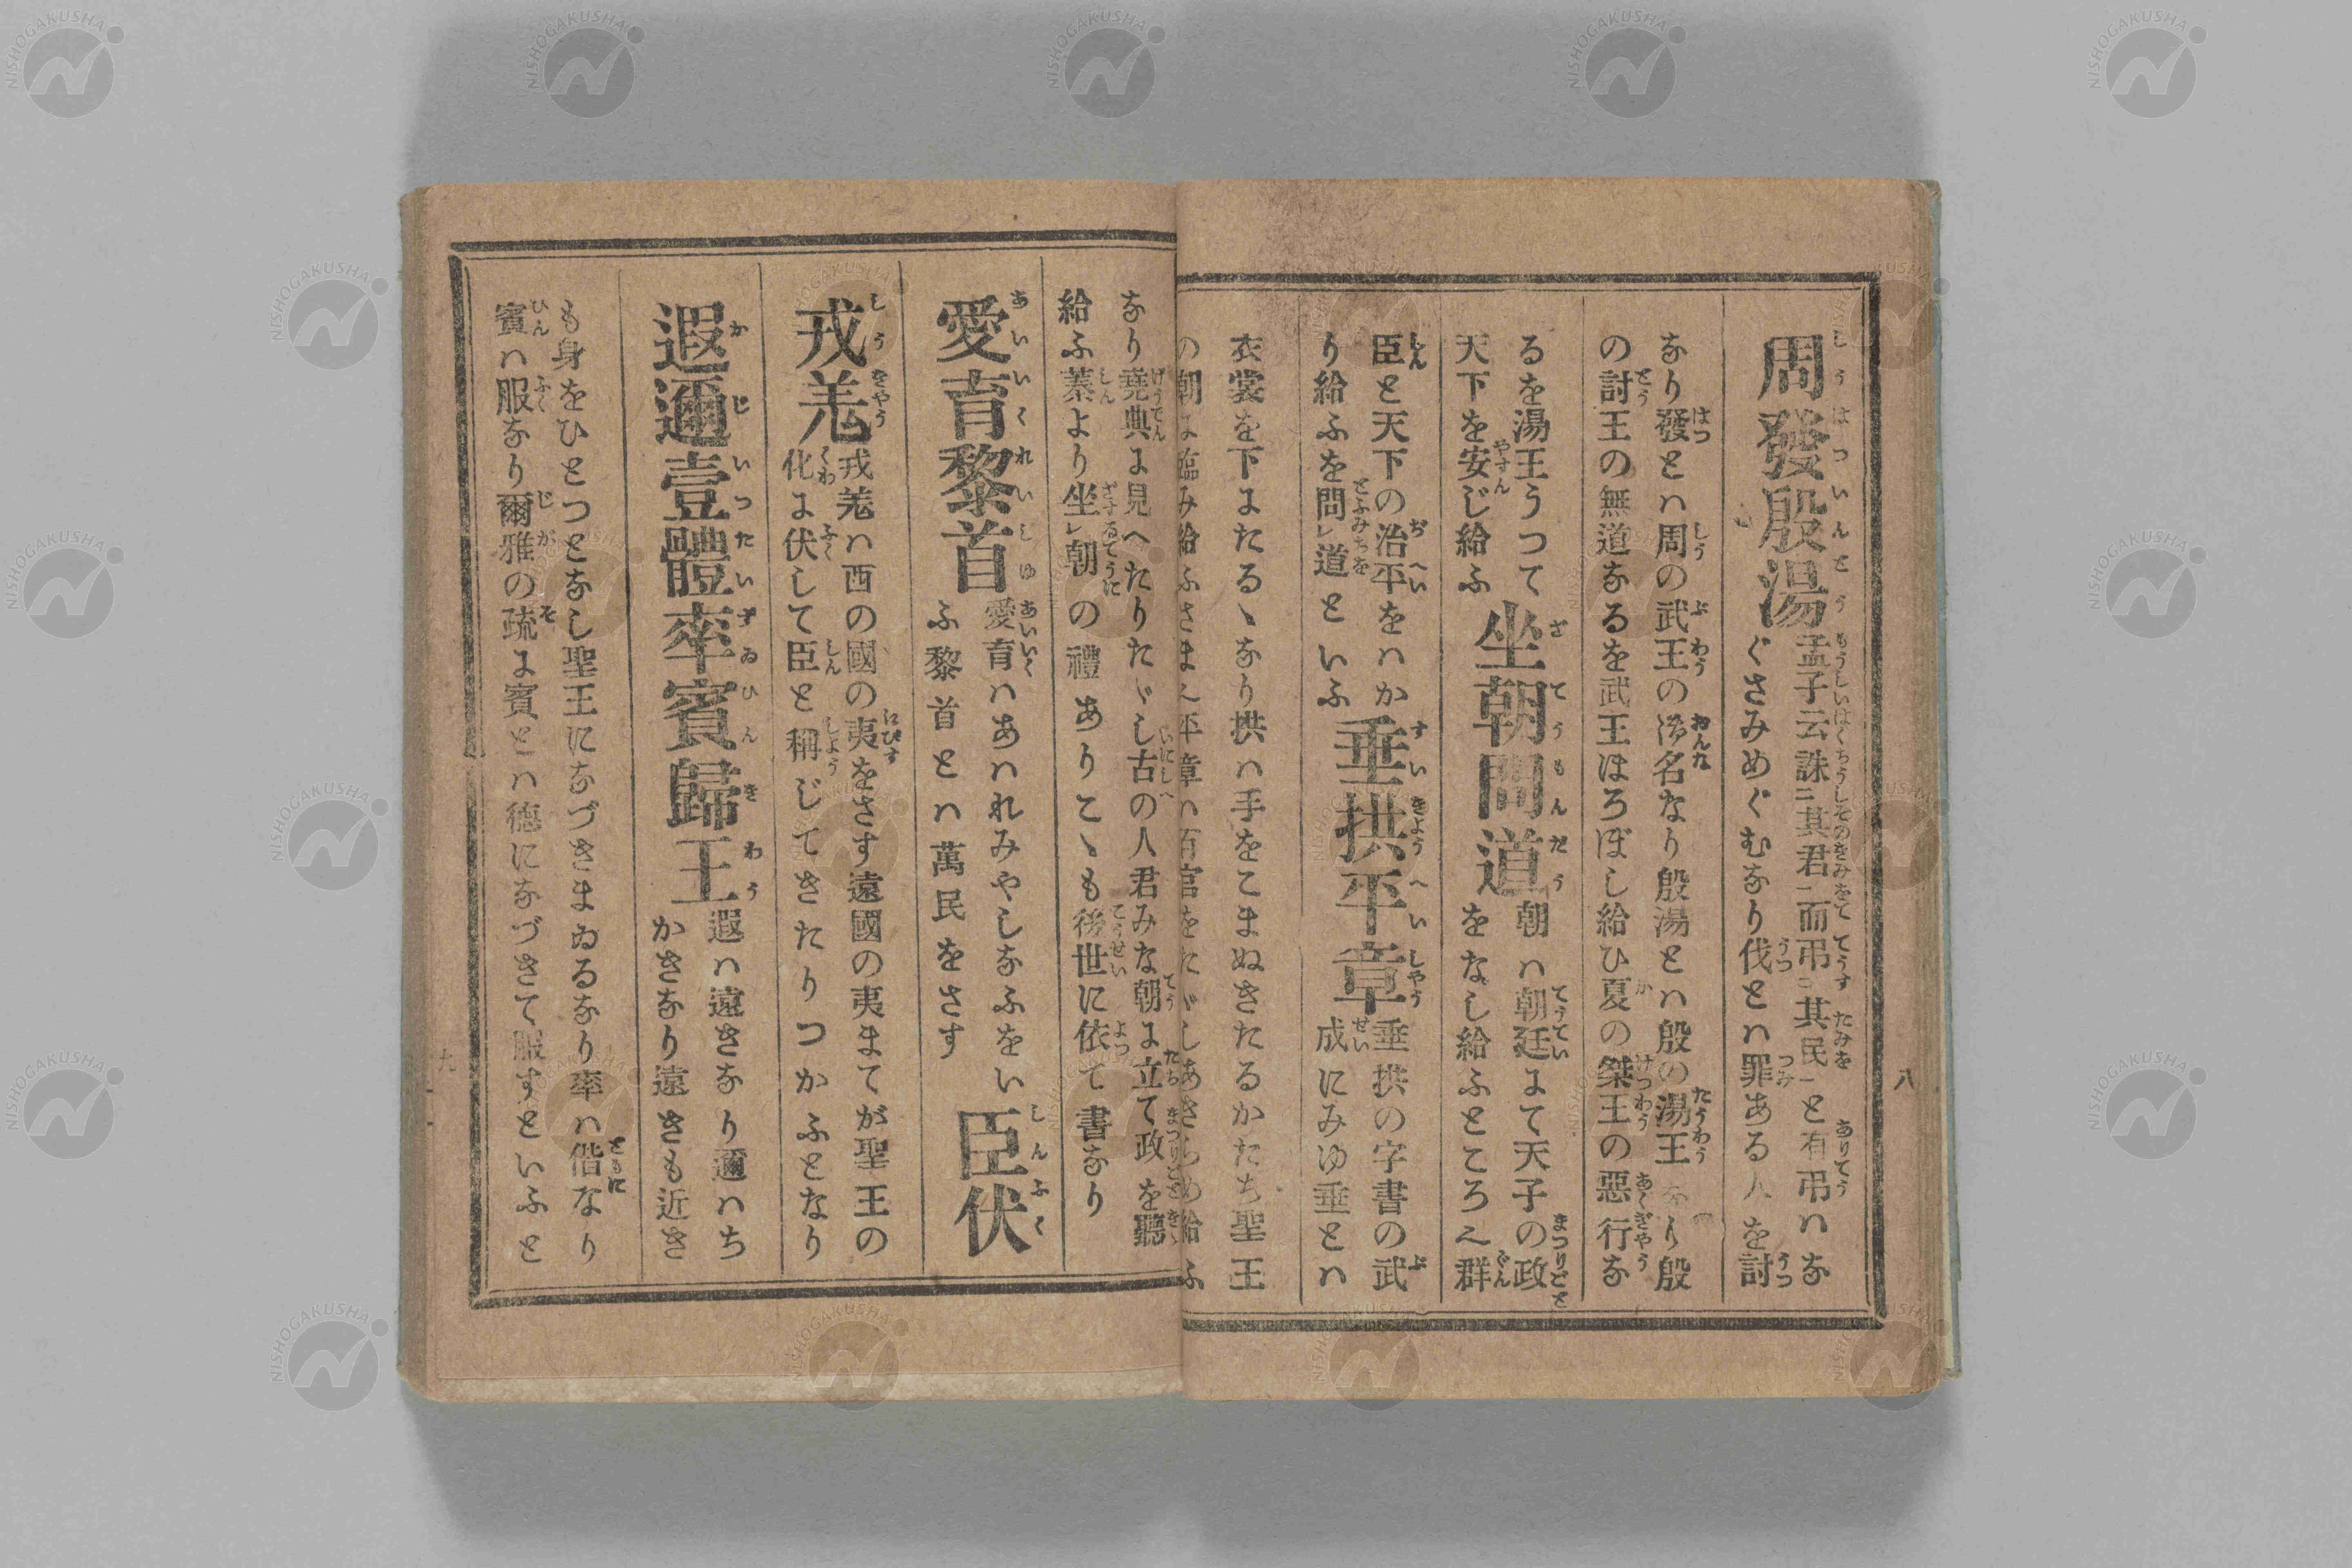 周發殷湯
孟子云誅二其君一而弔二其民一と有弔ハな
ぐさみめぐむなり伐とハ罪ある人を討
なり發とハ周の武王の御名なり殷湯とハ殷の湯王なり殷
の討王の無道なるを武王ほろぼし給ひ夏の桀王の惡行な
るを湯王うつて
天下を安じ給ふ
坐朝問道
朝ハ朝廷にて天子の政
をなし給ふところ也群
臣と天下の治平をハか
り給ふを問レ道といふ
垂拱平章
垂拱の字書の武
成にみゆ垂とハ
衣裳を下にたるゝなり拱ハ手をこまぬきたるかたち聖王
の朝に臨み給ふさま也平章ハ百官をたゞしあきらめ給ふ
なり堯典に見へたりたゞし古の人君みな朝に立て政を聽
給ふ蓁より坐レ朝の禮ありこゝも後世に依て書なり
愛育黎首
愛育ハあハれみやしなふをい
ふ黎首とハ萬民をさす
臣伏
戎羌
戎羌ハ西の國の夷をさす遠國の夷まてが聖王の
化に伏して臣と稱じてきたりつかふとなり
遐邇壹體率賓歸王
遐ハ遠きなり邇ハち
かきなり遠きも近き
も身をひとつとなし聖王になづきまゐるなり率ハ偕なり
賓ハ服なり爾雅の疏に賓とハ德になづきて服すといふと
八
九
NISHOGAKUSHA